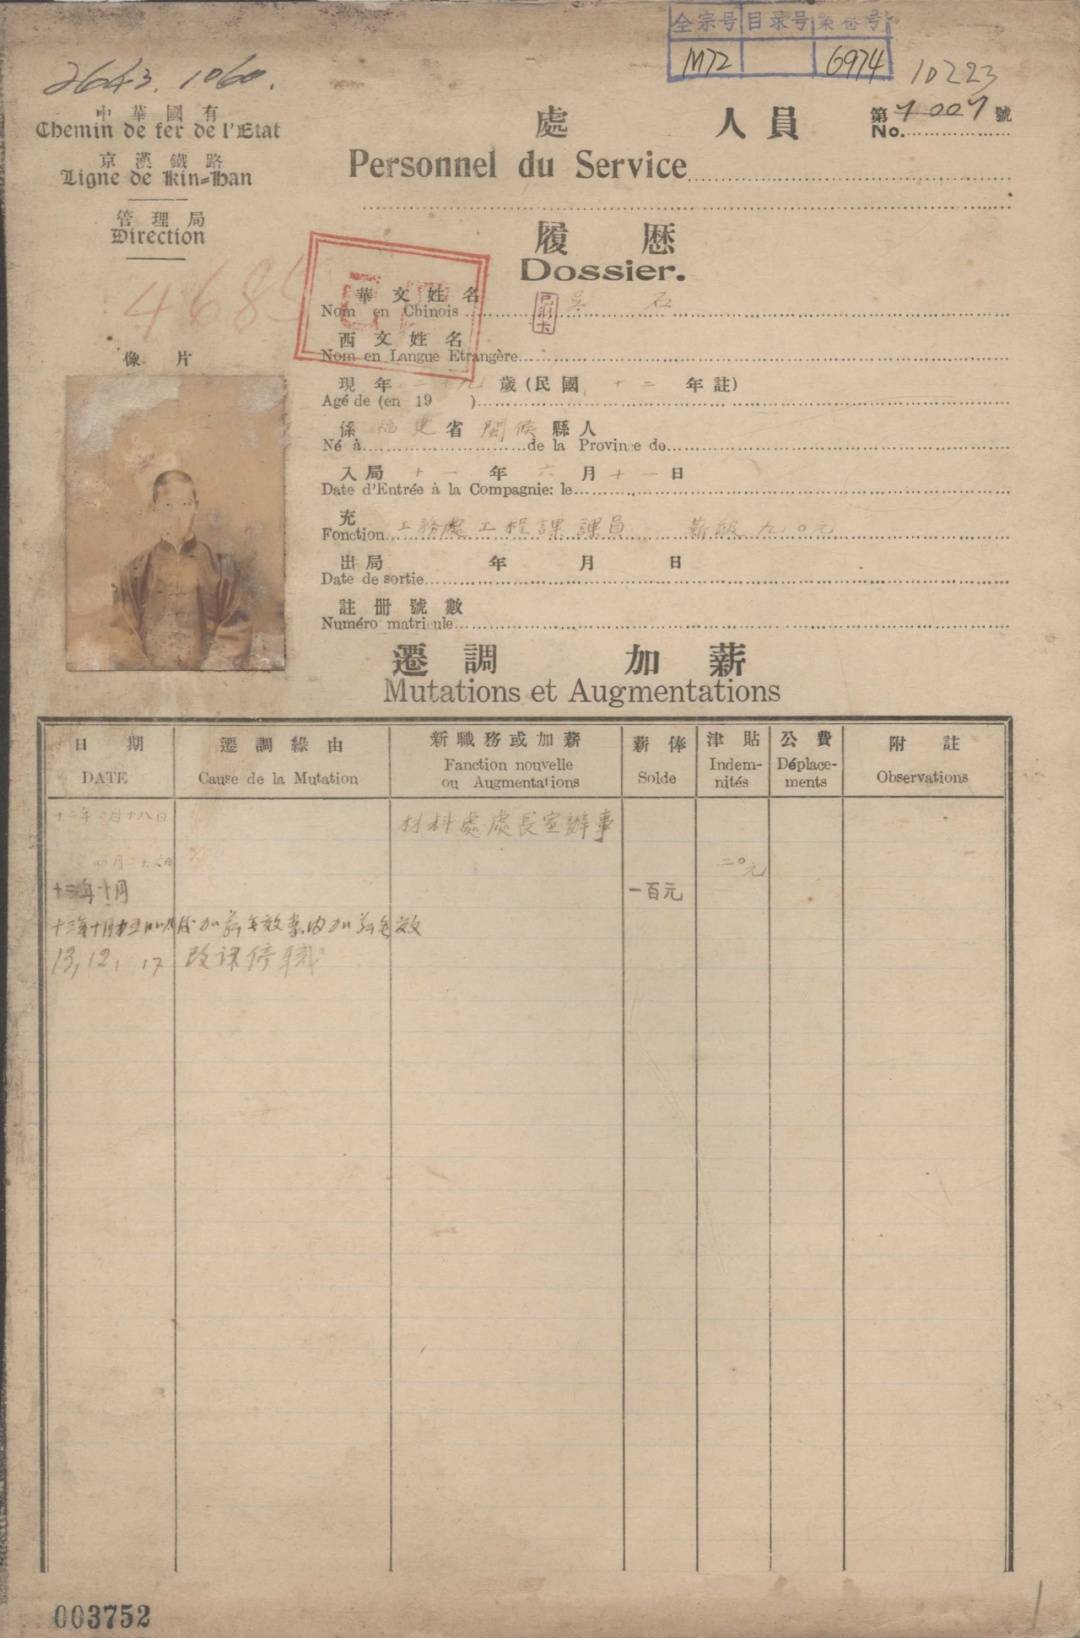 全宗号 目录号 案卷号
M72 6974
10223
2643.1060.
中華國有
Chemin de fer de l'Etat
京漢鐵路
Ligne de Kin=Han
管理局
Direction
處 人員
Personnel du Service
第 7007 號
No.
履歷
Dossier.
468
像片
華文姓名 吳石
Nom en Chinois
西文姓名
Nom en Langue Etrangère
現年二十九歲(民國十二年註)
Agé de (en 19 )
係福建省閩侯縣人
Né à de la Province de
入局十一年六月十一日
Date d'Entrée à la Compagnie: le
充 工務處工程課課員 薪級九〇元
Fonction
出局 年 月 日
Date de sortie
註冊號數
Numéro matricule
遷調 加薪
Mutations et Augmentations
日期 遷調緣由 新職務或加薪 薪俸 津貼 公費 附註
DATE Cause de la Mutation Fanction nouvelle ou Augmentations Solde Indem-nités Déplace-ments Observations
十二年 月十八日 材料處處長室辦事
二〇元
十三年十月 一百元
十三年十月 加薪 效 加薪 效
13,12,17 改課停職
003752
1